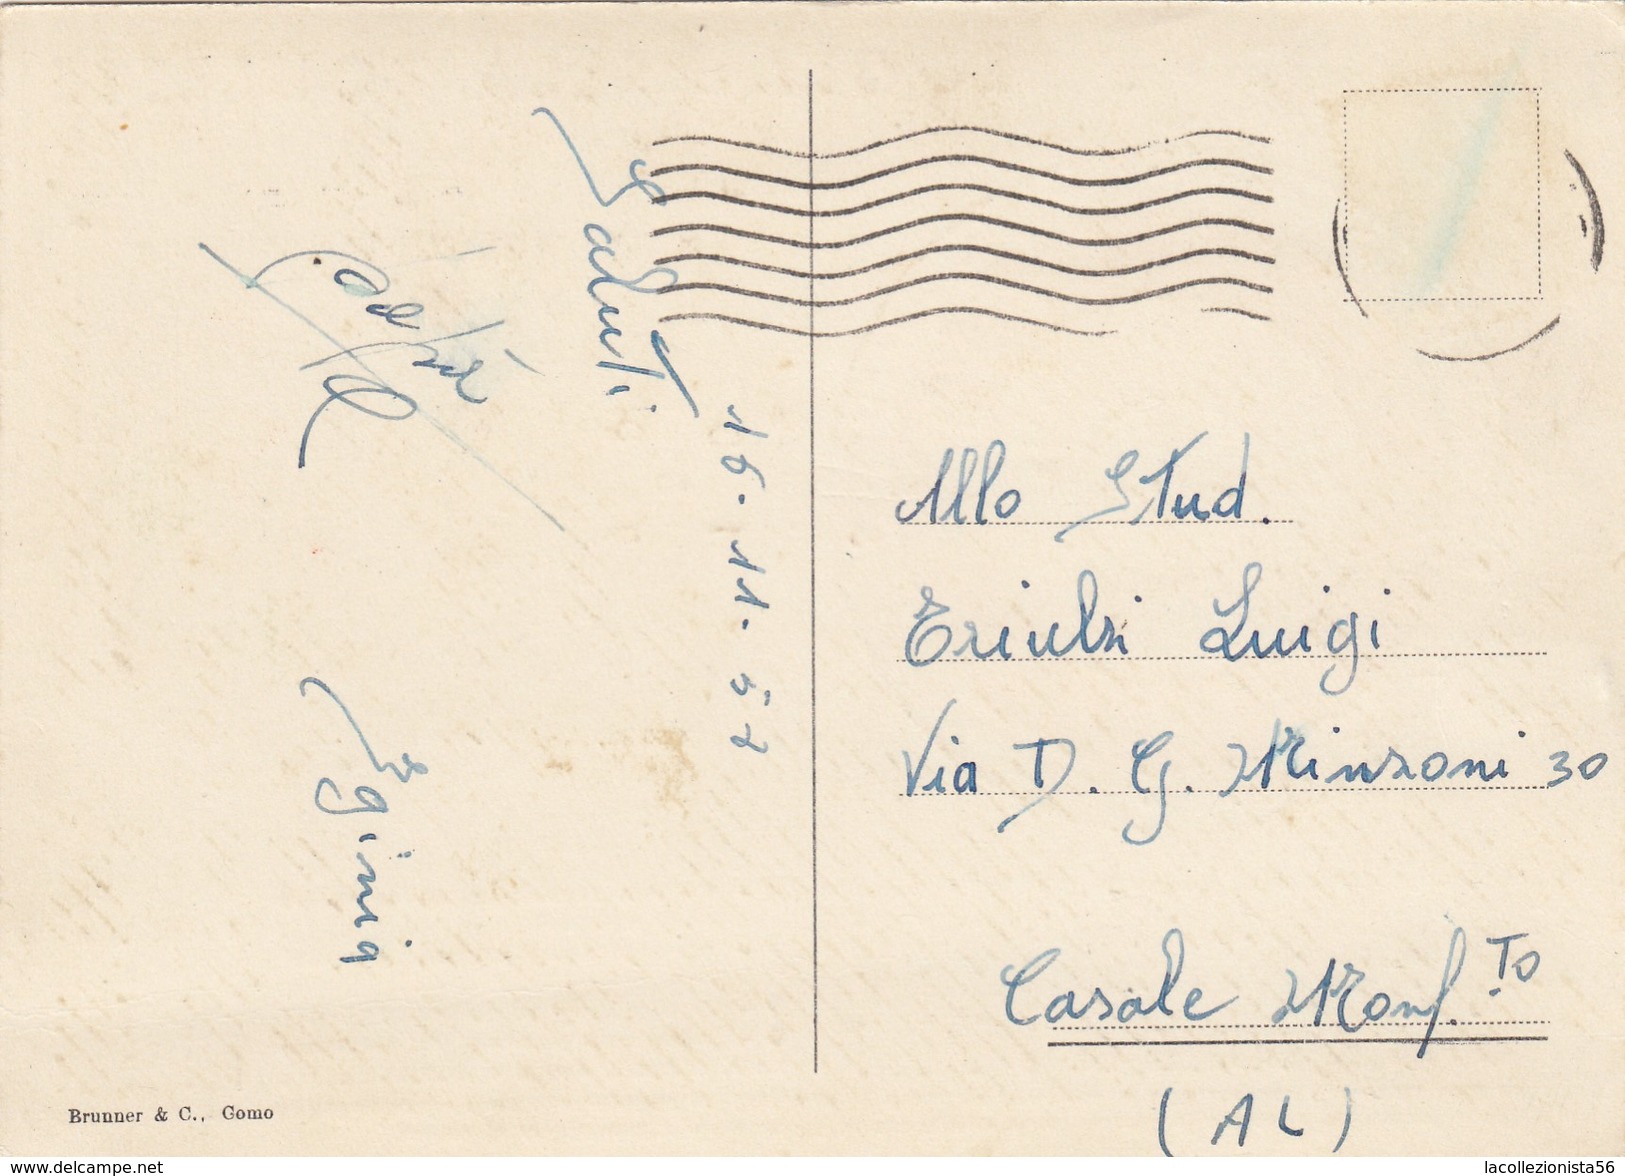 Saluti
16.11.57
Eginia
Allo Stud.
Triulzi Luigi
Via D. G. Minzoni 30
Casale Monf.to
(AL)
Brunner & C., Como
www.delcampe.net
lacollezionista56